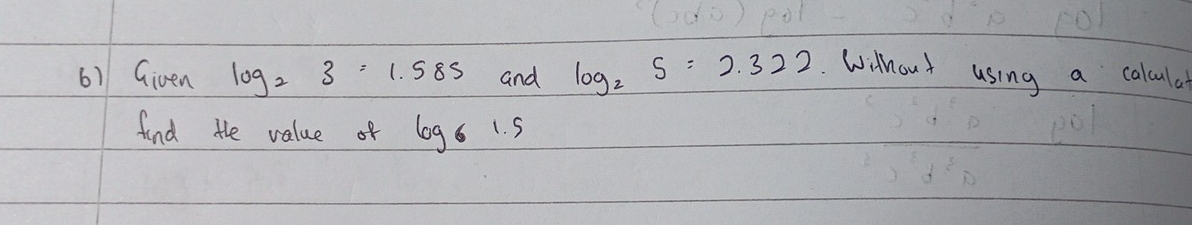 b) Given log₂ 3 = 1.585 and log₂ 5 = 2.322. Without using a calculat
find the value of log₆ 1.5